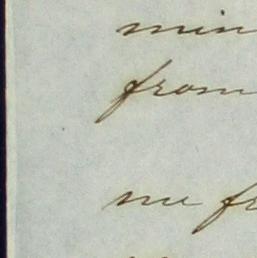 min
from
me fr